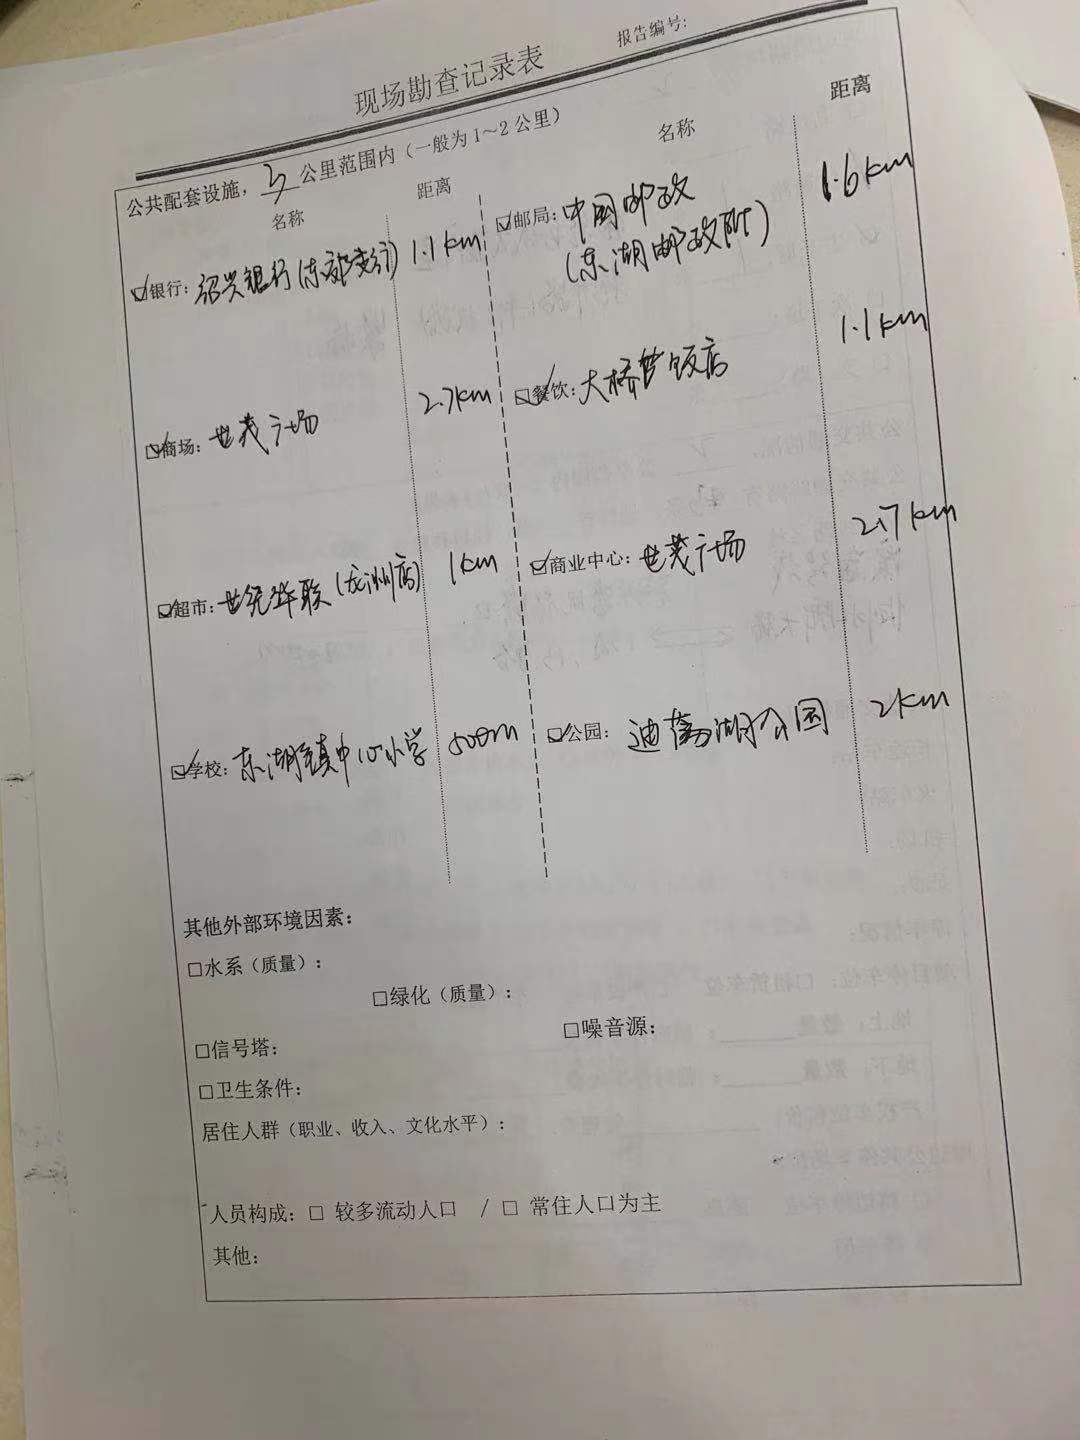 报告编号:
现场勘查记录表
公共配套设施, 3 公里范围内（一般为1～2公里）
名称 距离 名称 距离
☑银行: 绍兴银行(东部支行) 1.1km
☑邮局: 中国邮政 1.6km
(东湖邮政所)
☑商场: 世茂广场 2.7km
☑餐饮: 大桥 饭店 1.1km
☑超市: 世纪华联(龙洲店) 1km
☑商业中心: 世茂广场 2.7km
☑学校: 东湖镇中心小学 500m
☑公园: 迪荡湖公园 2km
其他外部环境因素:
□水系（质量）:
□绿化（质量）:
□噪音源:
□信号塔:
□卫生条件:
居住人群（职业、收入、文化水平）:
人员构成: □ 较多流动人口 / □ 常住人口为主
其他: